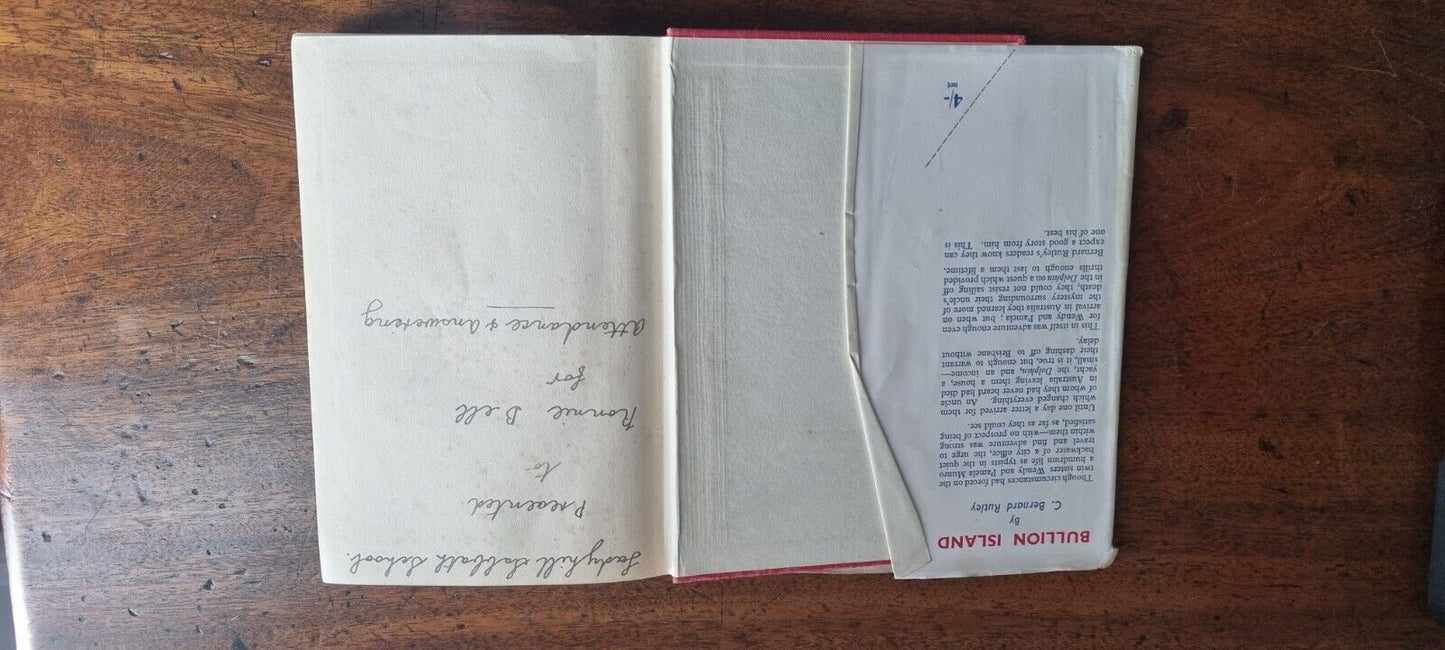 BULLION ISLAND
By
C. Bernard Rutley
Though circumstances had forced on the
twin sisters Wendy and Pamela Munro
a humdrum life as typists in the quiet
backwater of a city office, the urge to
travel and find adventure was strong
within them—with no prospect of being
satisfied, as far as they could see.
Until one day a letter arrived for them
which changed everything. An uncle
of whom they had never heard had died
in Australia leaving them a house, a
yacht, the Dolphin, and an income—
small, it is true, but enough to warrant
their dashing off to Brisbane without
delay.
This in itself was adventure enough even
for Wendy and Pamela; but when on
arrival in Australia they learned more of
the mystery surrounding their uncle's
death, they could not resist sailing off
in the Dolphin on a quest which provided
thrills enough to last them a lifetime.
Bernard Rutley's readers know they can
expect a good story from him. This is
one of his best.
4/-
net
Ladyhill Sabbath School.
Presented
to
Ronnie Bell
for
Attendance & Answering